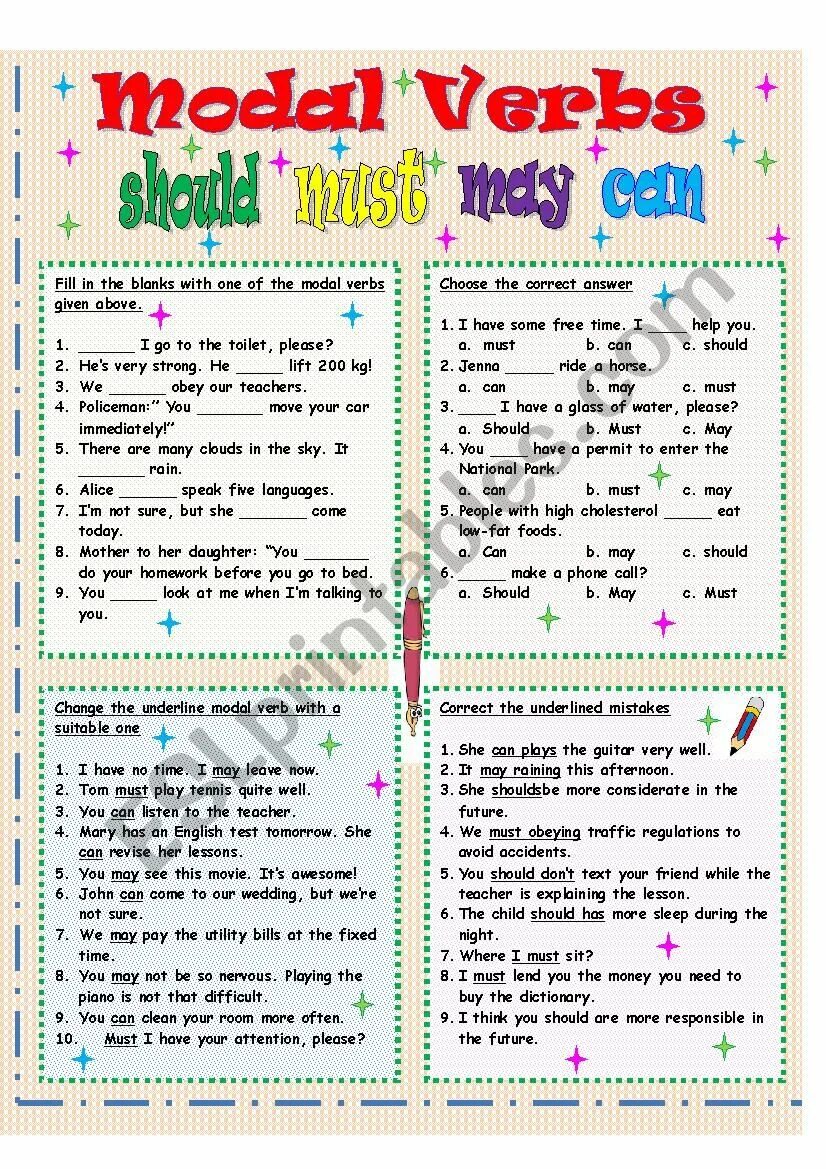 Modal Verbs
should must may can
Fill in the blanks with one of the modal verbs
given above.
1. ______ I go to the toilet, please?
2. He's very strong. He _____ lift 200 kg!
3. We ______ obey our teachers.
4. Policeman:” You _______ move your car
immediately!”
5. There are many clouds in the sky. It
_______ rain.
6. Alice ______ speak five languages.
7. I'm not sure, but she _______ come
today.
8. Mother to her daughter: “You _______
do your homework before you go to bed.
9. You _____ look at me when I'm talking to
you.
Choose the correct answer
1. I have some free time. I ____ help you.
a. must b. can c. should
2. Jenna _____ ride a horse.
a. can b. may c. must
3. ____ I have a glass of water, please?
a. Should b. Must c. May
4. You ____ have a permit to enter the
National Park.
a. can b. must c. may
5. People with high cholesterol _____ eat
low-fat foods.
a. Can b. may c. should
6. _____ make a phone call?
a. Should b. May c. Must
Change the underline modal verb with a
suitable one
1. I have no time. I may leave now.
2. Tom must play tennis quite well.
3. You can listen to the teacher.
4. Mary has an English test tomorrow. She
can revise her lessons.
5. You may see this movie. It's awesome!
6. John can come to our wedding, but we're
not sure.
7. We may pay the utility bills at the fixed
time.
8. You may not be so nervous. Playing the
piano is not that difficult.
9. You can clean your room more often.
10. Must I have your attention, please?
Correct the underlined mistakes
1. She can plays the guitar very well.
2. It may raining this afternoon.
3. She shouldsbe more considerate in the
future.
4. We must obeying traffic regulations to
avoid accidents.
5. You should don't text your friend while the
teacher is explaining the lesson.
6. The child should has more sleep during the
night.
7. Where I must sit?
8. I must lend you the money you need to
buy the dictionary.
9. I think you should are more responsible in
the future.
ESLprintables.com